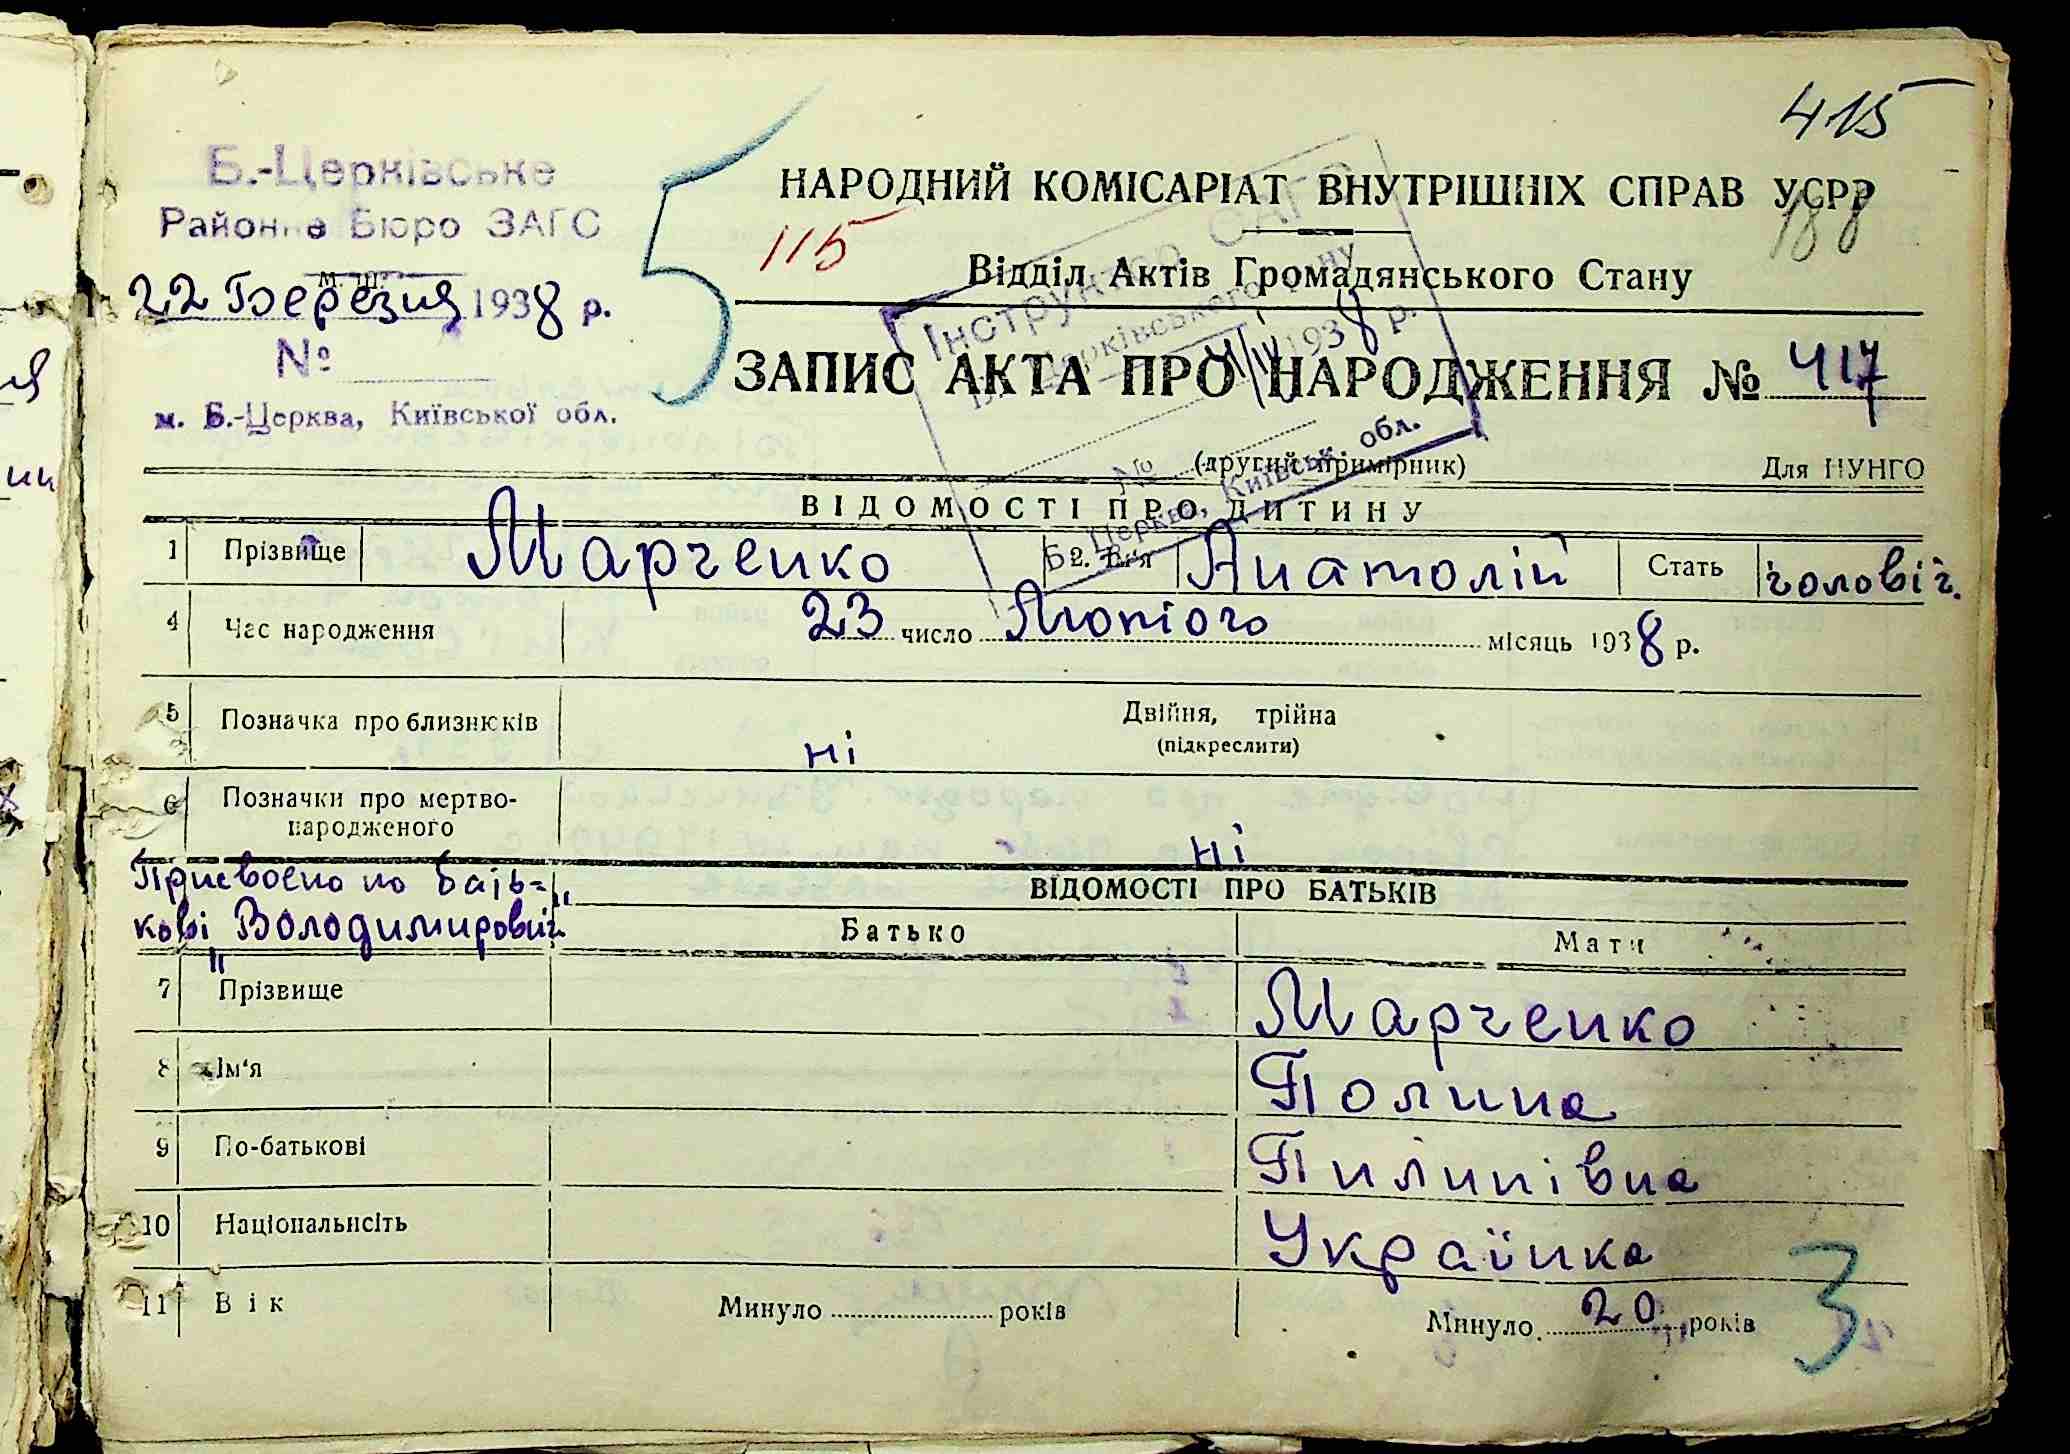 415
Б.-Церківське
Районне Бюро ЗАГС
22 Березня 1938 р.
№
м. Б.-Церква, Київської обл.
5
НАРОДНИЙ КОМІСАРІАТ ВНУТРІШНІХ СПРАВ УСРР
188
115
Відділ Актів Громадянського Стану
Інструктор САГС
Церківського
1938 р.
№
Б. Церква, Київськ. обл.
ЗАПИС АКТА ПРО НАРОДЖЕННЯ № 417
(другий примірник) Для НУНГО
ВІДОМОСТІ ПРО ДИТИНУ
1 Прізвище Марченко 2. Ім'я Анатолій Стать чоловіч.
4 Час народження 23 число Лютого місяць 1938 р.
5 Позначка про близнюків ні Двійня, трійна
(підкреслити)
6 Позначки про мертво-
народженого ні
Присвоено по бать=
кові „Володимирович"
ВІДОМОСТІ ПРО БАТЬКІВ
Батько Мати
7 Прізвище Марченко
8 Ім'я Полина
9 По-батькові Пилипівна
10 Національність Українка
11 Вік Минуло років Минуло 20 років
3